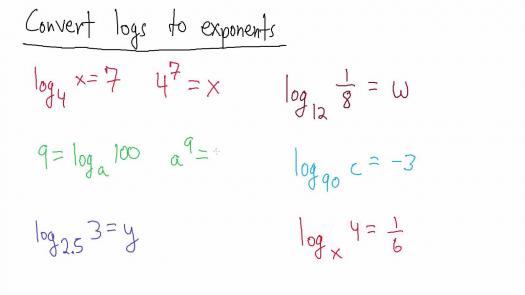 Convert logs to exponents
log₄ x = 7   4⁷ = x   log₁₂ 1/8 = w
9 = logₐ 100   a⁹ =   log₉₀ c = -3
log₂.₅ 3 = y   logₓ 4 = 1/6